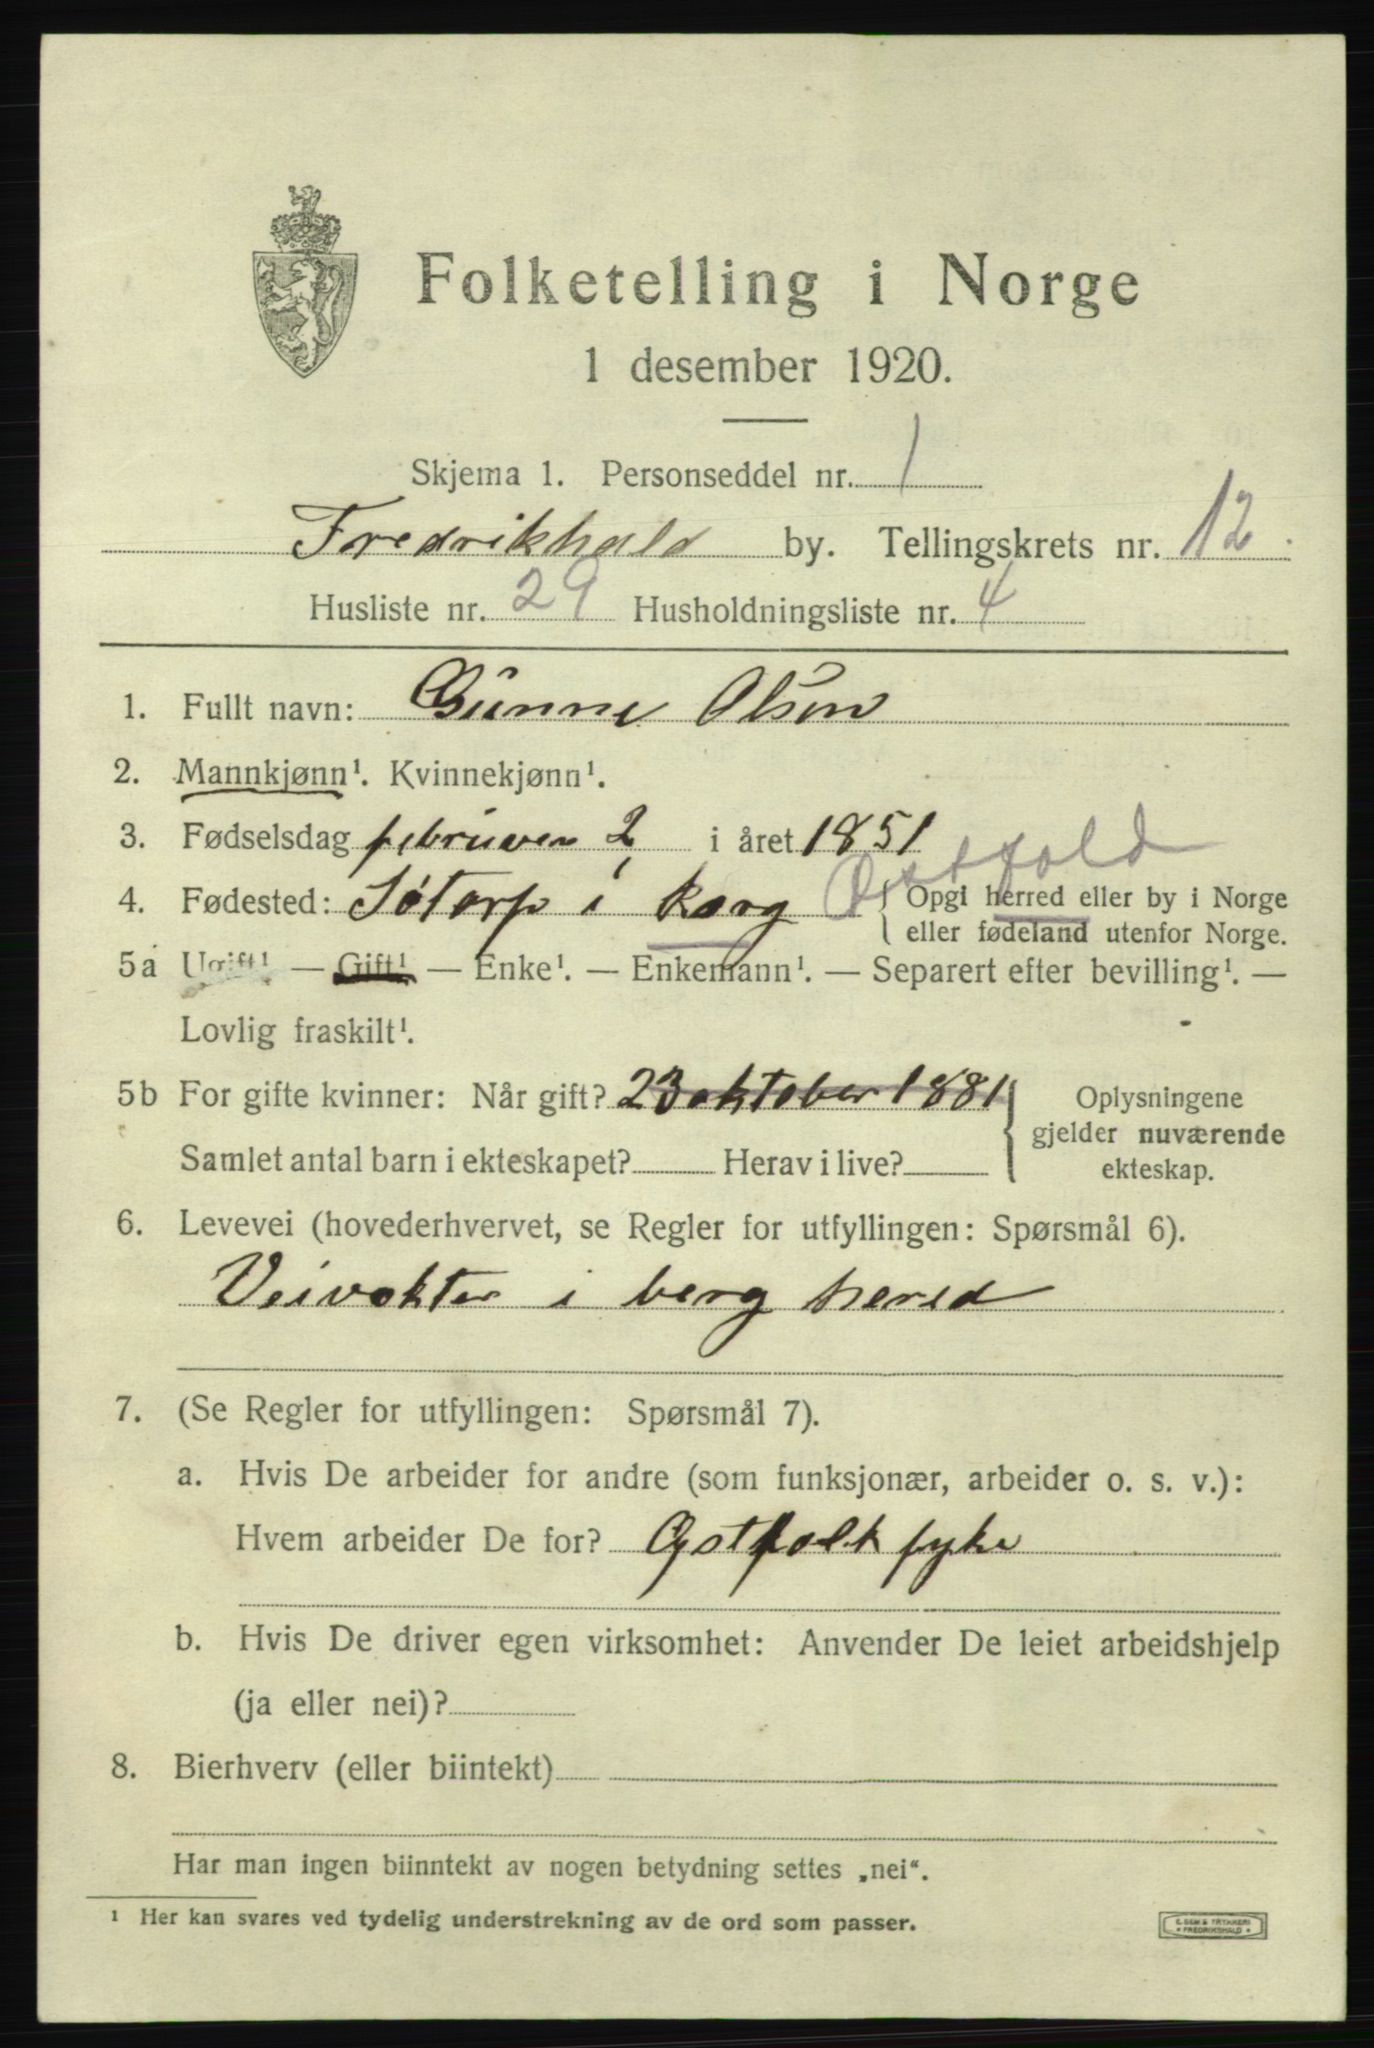 Folketelling i Norge
1 desember 1920.
Skjema 1. Personseddel nr. 1
Fredrikhald by. Tellingskrets nr. 12.
Husliste nr. 29 Husholdningsliste nr. 4
1. Fullt navn: Gunne Olsen
2. Mannkjønn¹. Kvinnekjønn¹.
3. Fødselsdag februver 2 i året 1851
Østfold
4. Fødested: i Opgi herred eller by i Norge
eller fødeland utenfor Norge.
5a Ugift¹ — Gift¹ — Enke¹. — Enkemann¹. — Separert efter bevilling¹. —
Lovlig fraskilt¹.
5b For gifte kvinner: Når gift? 23 oktober 1881
Oplysningene
gjelder nuværende
ekteskap.
Samlet antal barn i ekteskapet? Herav i live?
6. Levevei (hovederhvervet, se Regler for utfyllingen: Spørsmål 6).
Veivokter i berg hered
7. (Se Regler for utfyllingen: Spørsmål 7).
a. Hvis De arbeider for andre (som funksjonær, arbeider o. s. v.):
Hvem arbeider De for? fylke
b. Hvis De driver egen virksomhet: Anvender De leiet arbeidshjelp
(ja eller nei)?
8. Bierhverv (eller biintekt)
Har man ingen biinntekt av nogen betydning settes „nei“.
¹ Her kan svares ved tydelig understrekning av de ord som passer.
TRYKKERI
FREDRIKSHALD